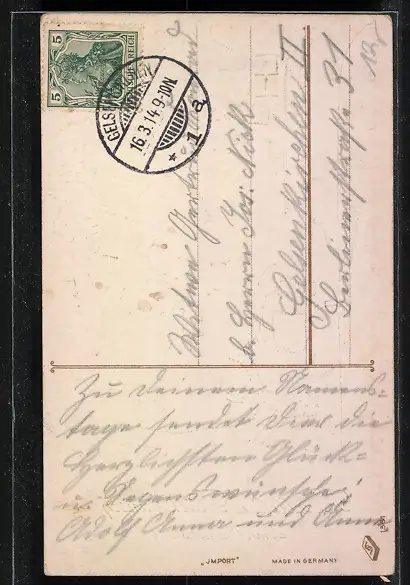 5
DEUTSCHES REICH
5
GELSENKIRCHEN
16.3.14.9-10N.
* 1 a
12,-
Witwe
b. Herrn Jos.
Gelsenkirchen II
31
Zu Deinem Namens-
tage sendet Dir die
herzlichsten Glück-
Segenswünsche
Adolf Anna und
"JMPORT"
MADE IN GERMANY